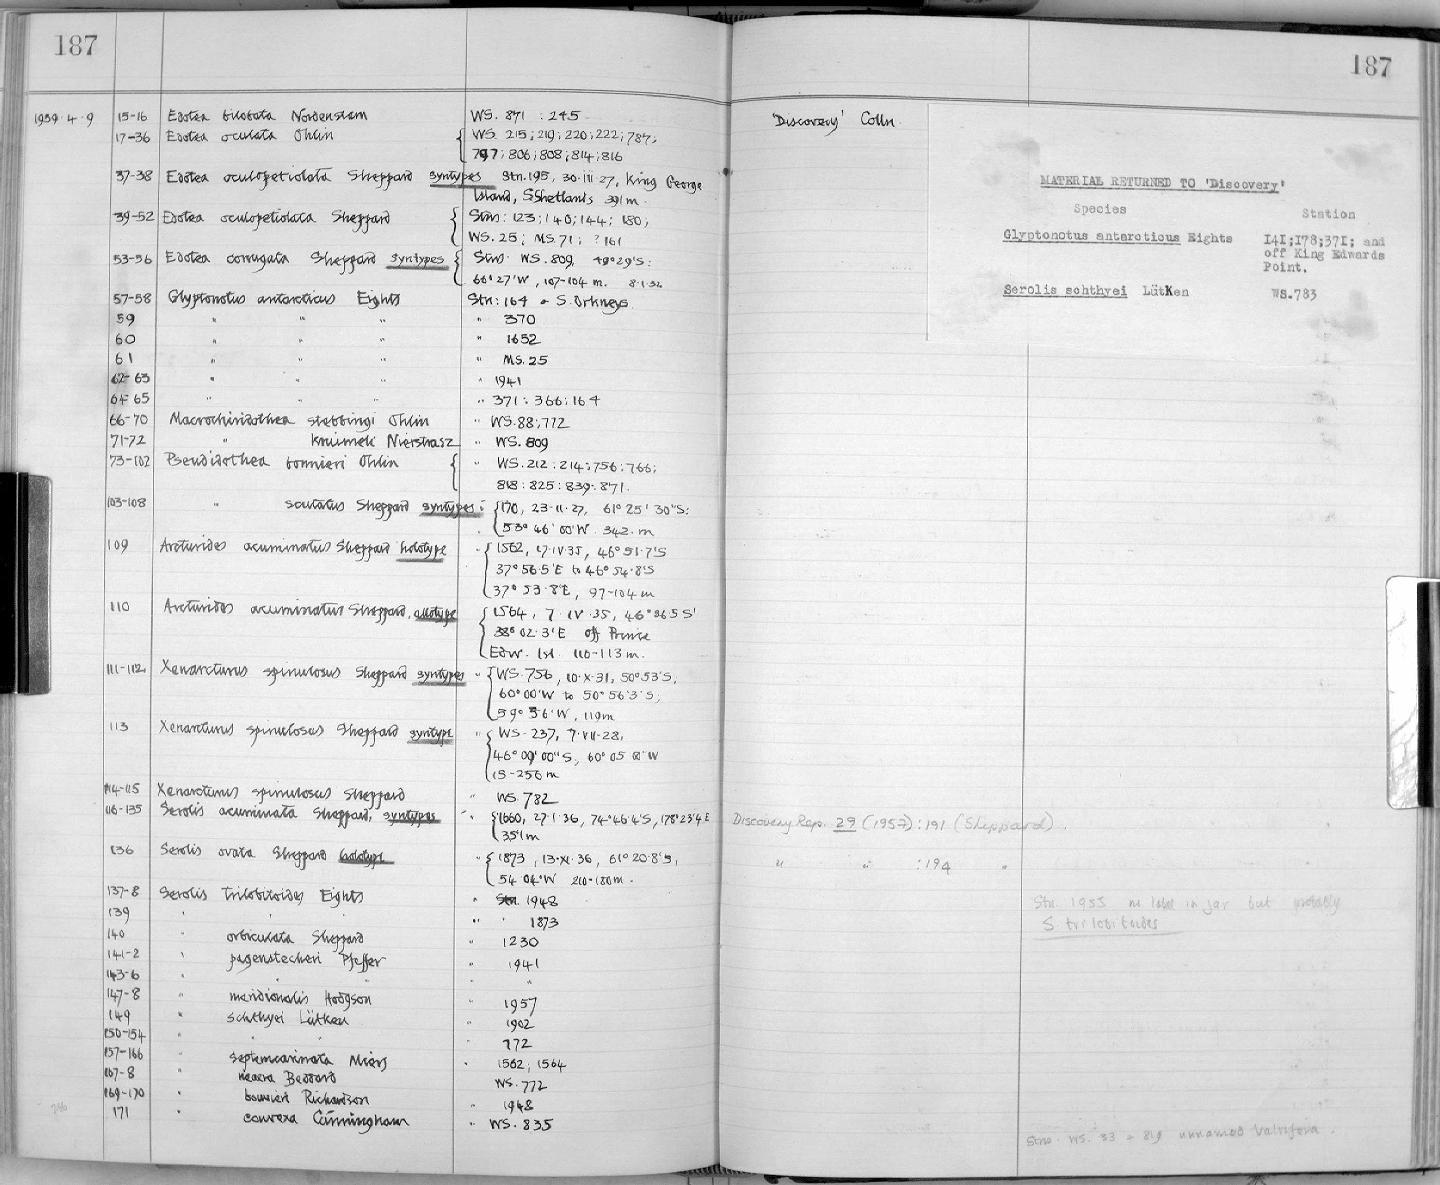 187
1959.4.9 15-16 Edotea bilobata Nordenstam WS. 871 : 245
17-36 Edotea oculata Ohlin WS. 215; 219; 220; 222; 787;
797; 806; 808; 814; 816
37-38 Edotea oculopetiolata Sheppard syntypes Stn. 195, 30.III.27, King George
Island, S. Shetlands 391m.
39-52 Edotea oculopetiolata Sheppard Stns: 123; 140; 144; 180;
WS. 25; MS. 71; ? 161
53-56 Edotea corrugata Sheppard syntypes Stns. WS. 809, 49°29'S:
66°27'W, 107-104 m. 8.1.32
57-58 Glyptonotus antarcticus Eights Stn: 164 S. Orkneys
59 " " " " 370
60 " " " " 1652
61 " " " " MS. 25
62-63 " " " " 1941
64-65 " " " " 371: 366: 164
66-70 Macrochiridothea stebbingi Ohlin " WS. 88; 772
71-72 " Nierstrasz " WS. 809
73-102 Pseudidothea bonnieri Ohlin " WS. 212: 214: 756: 766;
818: 825: 839: 871.
103-108 " scutatus Sheppard syntypes: 170, 23.II.27, 61° 25' 30"S:
53° 46' 00"W. 342. m
109 Arcturides acuminatus Sheppard holotype " 1562, 7.IV.35, 46° 51.7'S
37° 56.5'E to 46° 54.8'S
37° 53.8'E, 97-104 m
110 Arcturides acuminatus Sheppard, allotype 1564, 7.IV.35, 46° 36.5 S'
38° 02.3'E off Prince
Edw. Isl. 110-113 m.
111-112 Xenarcturus spinulosus Sheppard syntypes " WS. 756, 10.X.31, 50°53'S,
60°00'W to 50° 56'3'S;
59° 56'W, 119m
113 Xenarcturus spinulosus Sheppard syntype " WS. 237, 7.VII.28,
46° 00' 00"S, 60° 05 W
15-256 m
114-115 Xenarcturus spinulosus Sheppard " WS 782
116-135 Serolis acuminata Sheppard, syntypes " 1660, 27.1.36, 74°46.4'S, 178°23'4 E
351m
136 Serolis ovata Sheppard holotype " 1873, 13.XI.36, 61° 20.8'S,
54 04'W 210-180m.
137-8 Serolis trilobitoides Eights " 1948
139 " " " " " 1873
140 " orbiculata Sheppard " 1230
141-2 " pagenstecheri Pfeffer " 1941
143-6 " " " "
147-8 " meridionalis Hodgson " 1957
149 " schthyei Lütken " 1902
150-154 " " " 772
157-166 " septemcarinata Miers " 1562; 1564
167-8 " neaera Beddard WS. 772
169-170 " bouvieri Richardson " 1948
171 " convexa Cunningham " WS. 835
187
'Discovery' Colln.
MATERIAL RETURNED TO 'Discovery'
Species Station
Glyptonotus antarcticus Eights 141;178;371; and
off King Edwards
Point.
Serolis schthyei Lütken WS.783
Discovery Rep. 29 (1957): 191 (Sheppard).
" " : 194 "
Stn. 1955 no label in jar but probably
S trilobitoides
Stns. WS. 33 819 unnamed Valvifera.